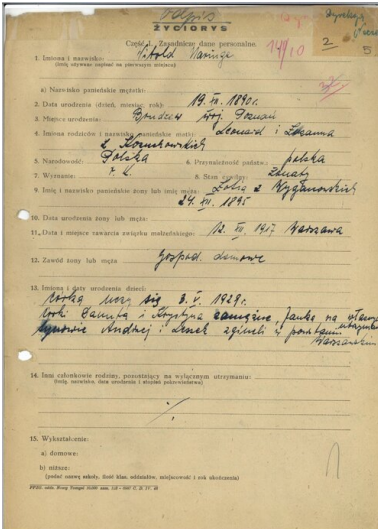 Odpis
ŻYCIORYS
2
5
Część I. Zasadnicze dane personalne.
14/10
1. Imiona i nazwisko: Witold
(Imię, używane napisać na pierwszym miejscu)
a) Nazwisko panieńskie mężatki:
2. Data urodzenia (dzień, miesiąc, rok): 19. XII. 1890 r.
3. Miejsce urodzenia: woj. Poznań
4. Imiona rodziców i nazwisko panieńskie matki: Leonard i Zuzanna
z
5. Narodowość: Polska 6. Przynależność państw.: polska
7. Wyznanie: r. k. 8. Stan cywilny: żonaty
9. Imię i nazwisko panieńskie żony lub imię męża: Zofia z Wyganowskich
24. XII. 1895
10. Data urodzenia żony lub męża:
11. Data i miejsce zawarcia związku małżeńskiego: 12. XII. 1917 Warszawa
12. Zawód żony lub męża Gospod. domowe
13. Imiona i daty urodzenia dzieci:
się 3. V. 1929.
córki Danuta i Krystyna zamężne, Janka na
utrzymaniu
synowie Andrzej i Leszek zginęli w powstaniu
Warszawskim
14. Inni członkowie rodziny, pozostający na wyłącznym utrzymaniu:
(Imię, nazwisko, data urodzenia i stopień pokrewieństwa)
15. Wykształcenie:
a) domowe:
b) niższe:
(podać nazwę szkoły, ilość klas, oddziałów, miejscowość i rok ukończenia)